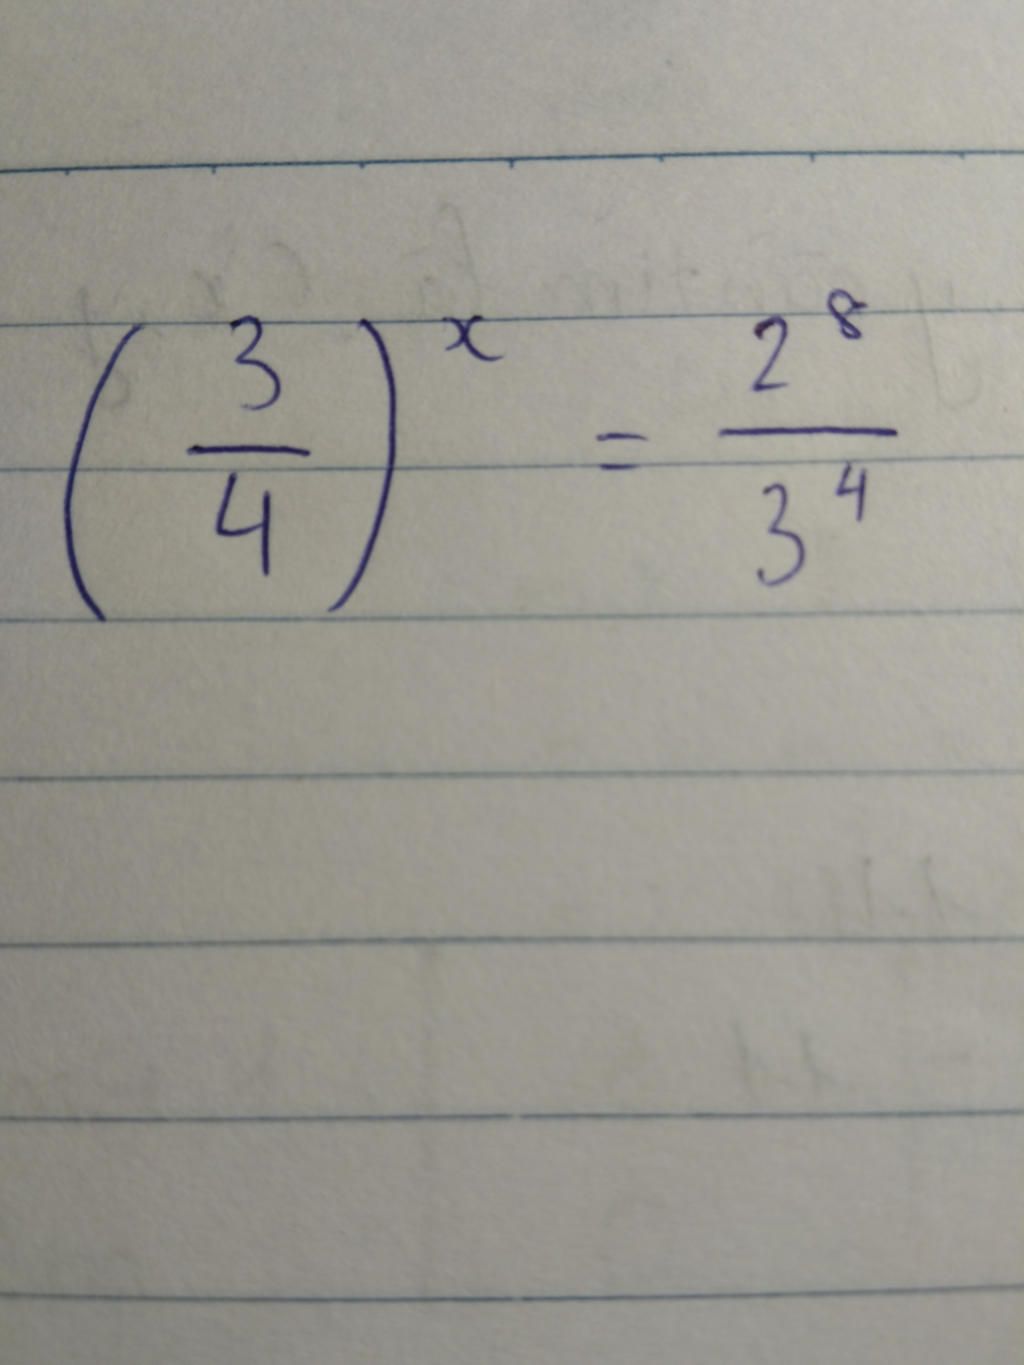 (3/4)^x = 2^8/3^4